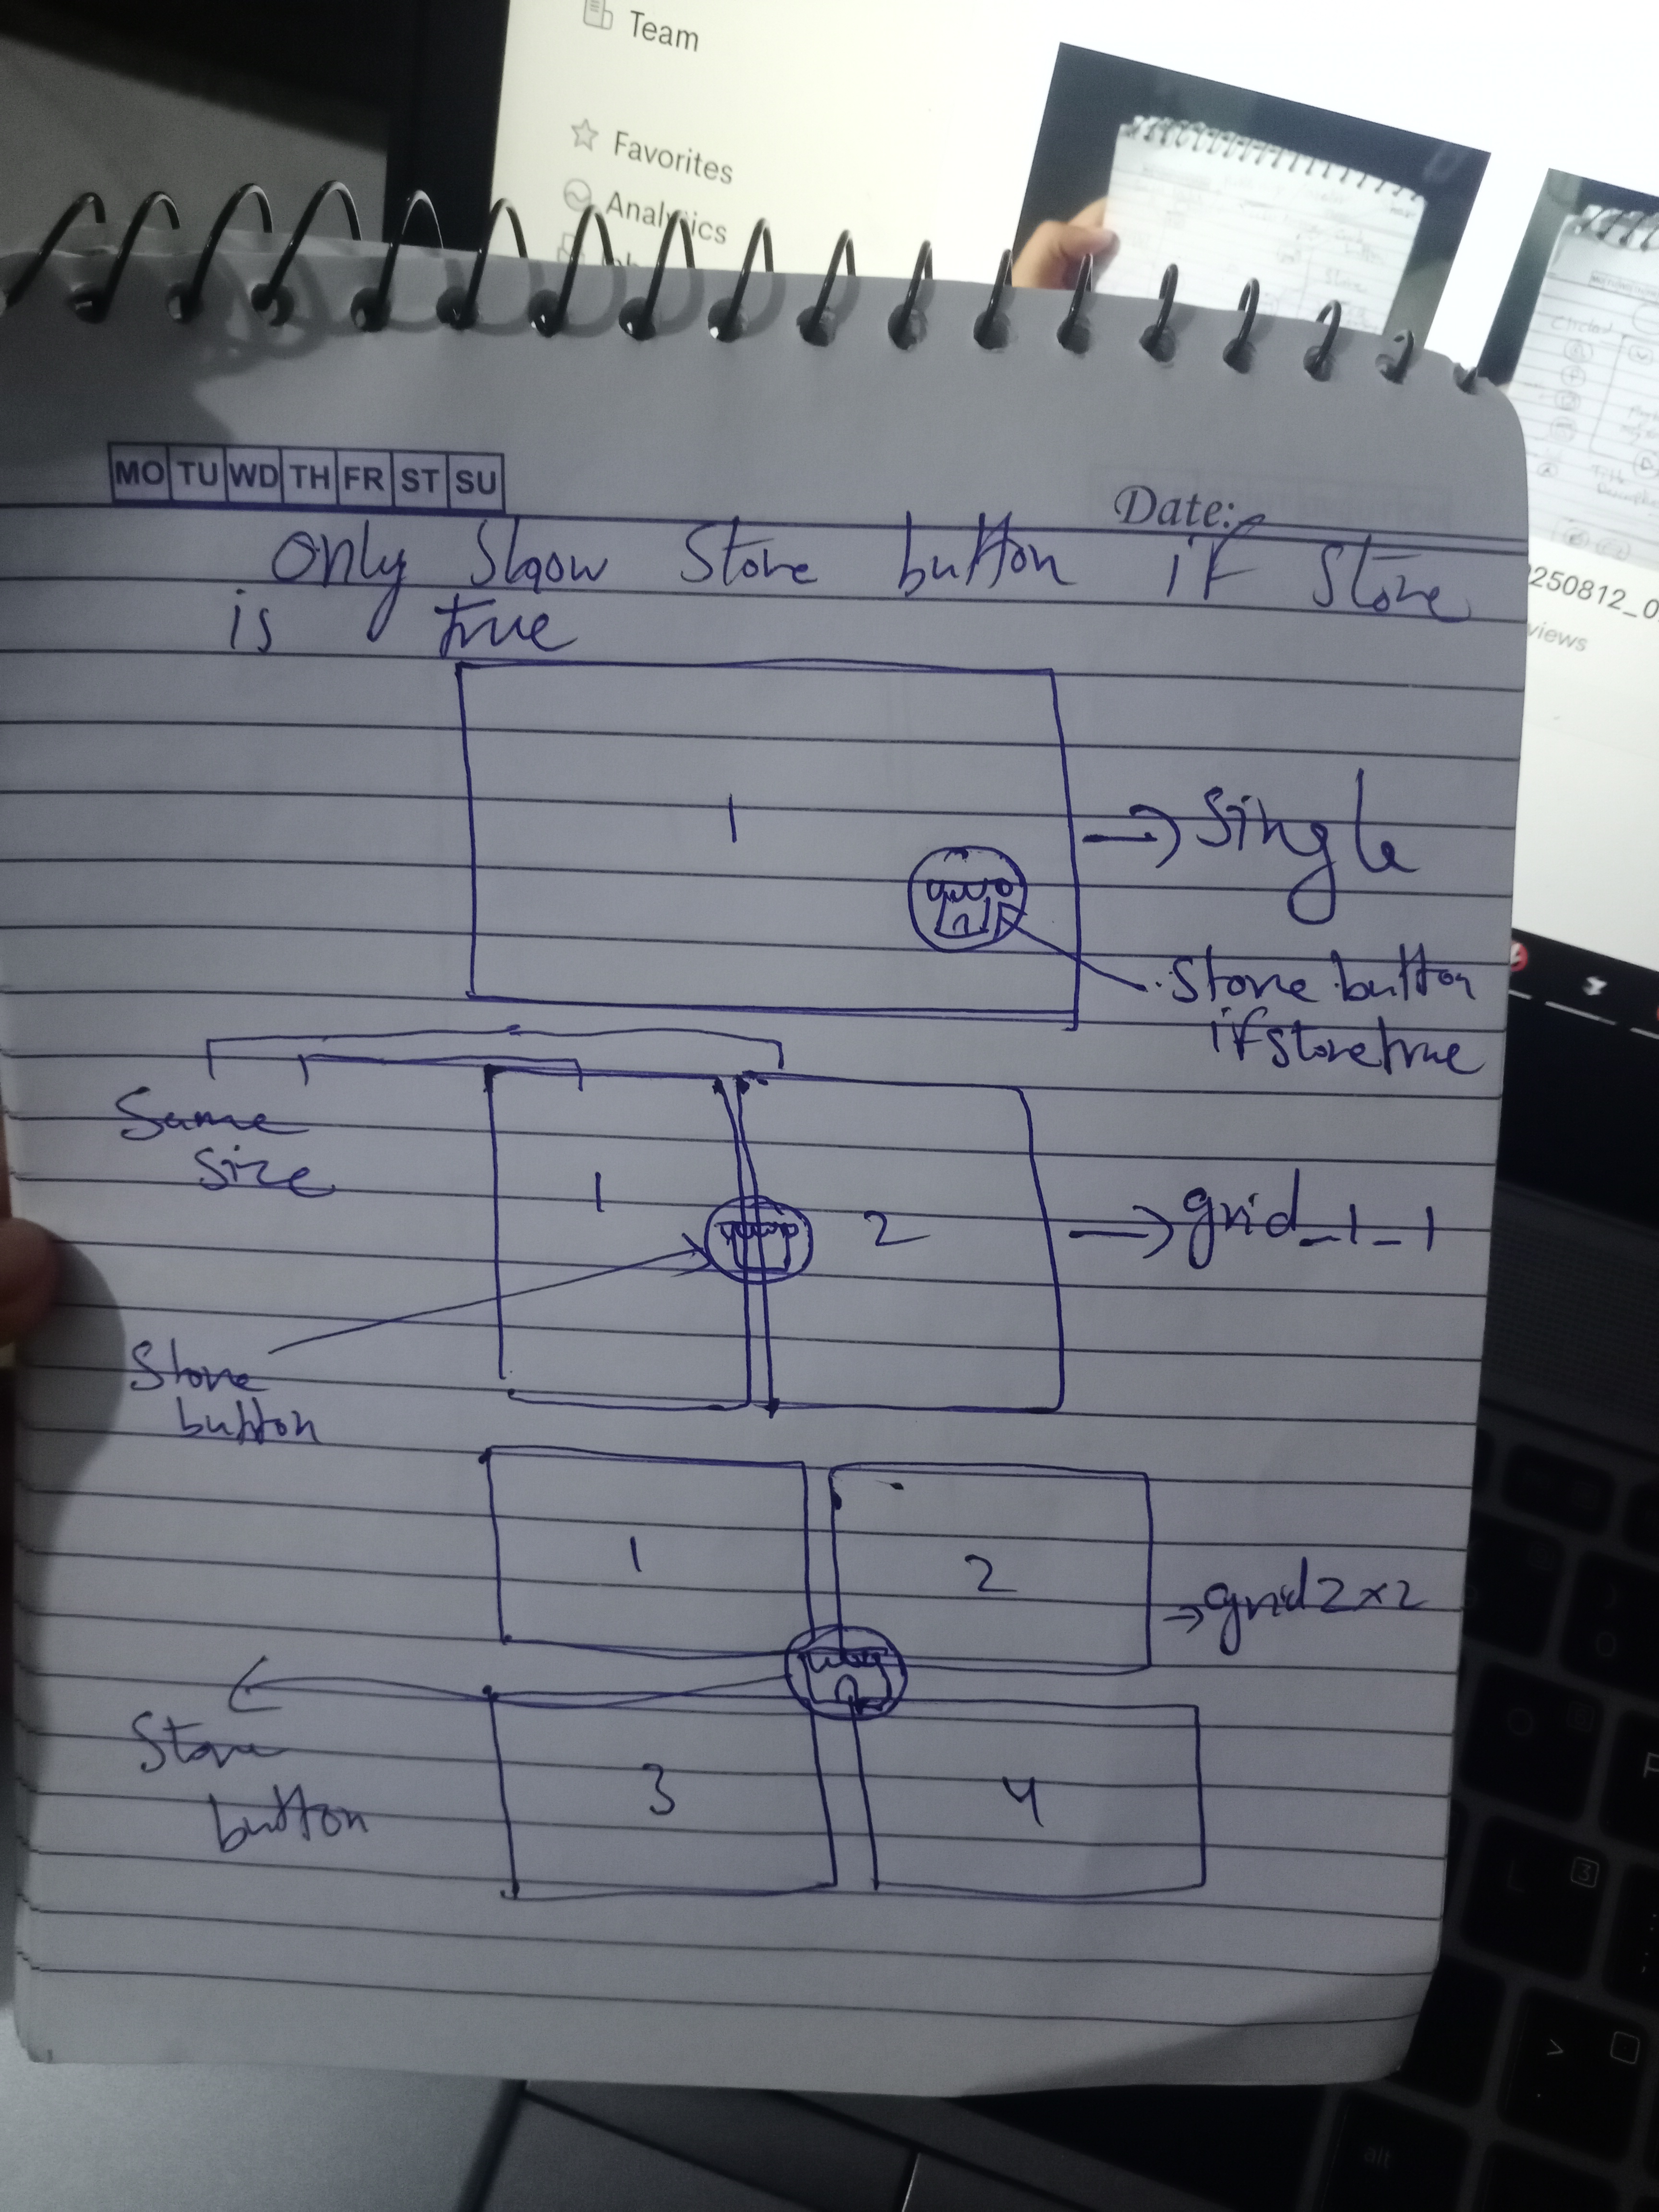 Team
Favorites
Analytics
MO TU WD TH FR ST SU
Date:
only Show Store button if Store
is true
1
→ Single
Store button
if store true
Same
size
1
2
→ grid_1_1
Store
button
1
2
→ grid 2×2
Store
button
3
4
250812_0
views
L
3
>
alt